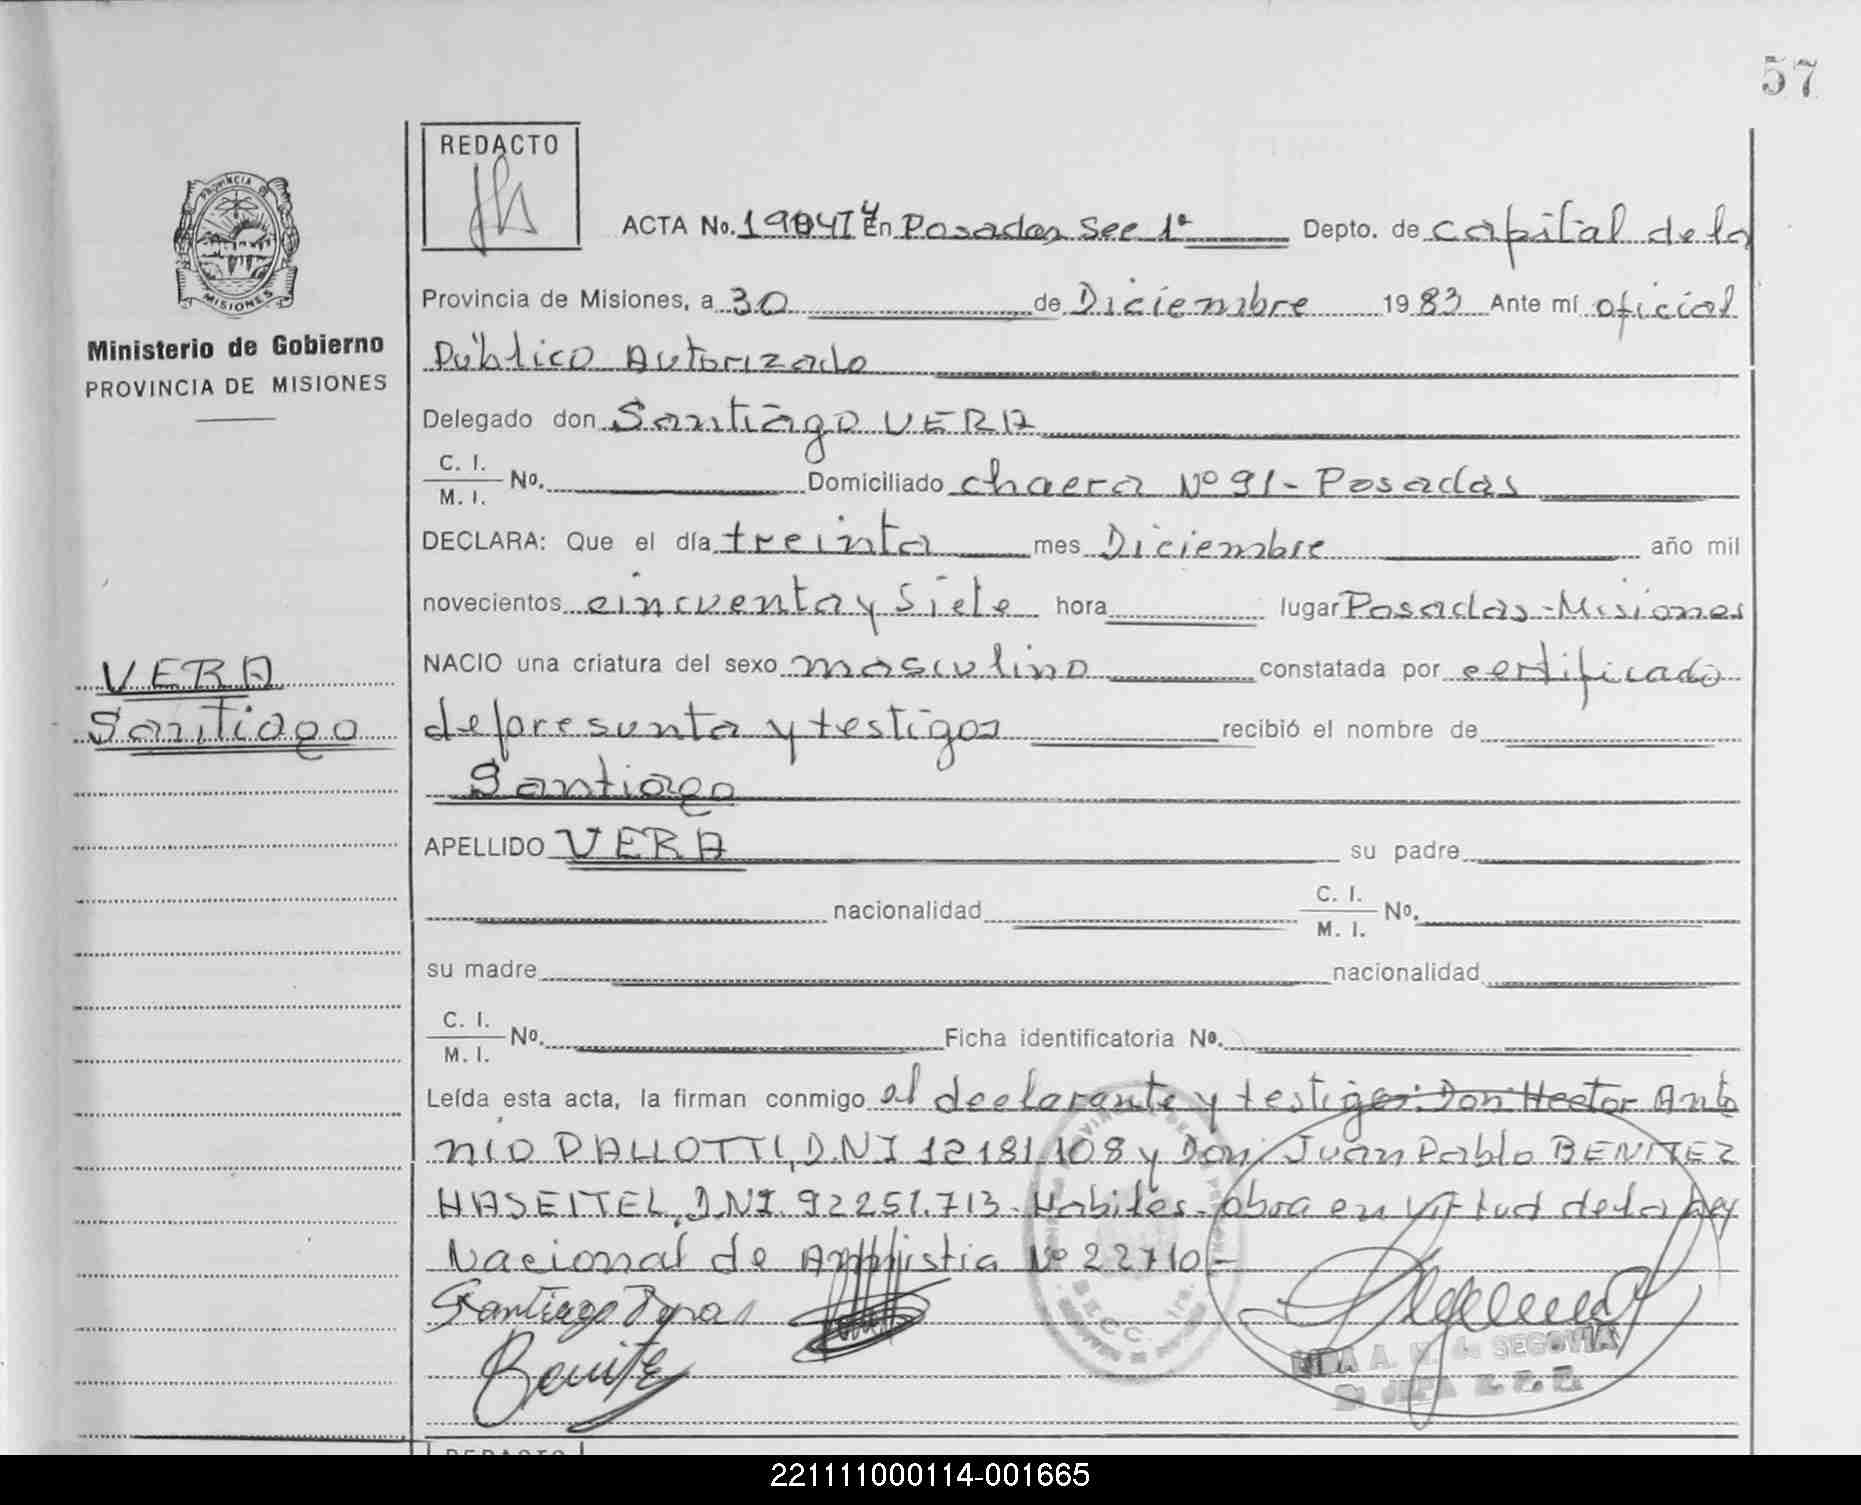 57
REDACTO
PROVINCIA DE
MISIONES
Ministerio de Gobierno
PROVINCIA DE MISIONES
VERA
Santiago
ACTA No. En Posadas Sec 1ª Depto. de capital de la
Provincia de Misiones, a 30 de Diciembre 1983 Ante mí oficial
Público Autorizado
Delegado don Santiago VERA
C. I.
M. I. No. Domiciliado chacra Nº 91 - Posadas
DECLARA: Que el día treinta mes Diciembre año mil
novecientos cincuenta y siete hora lugar Posadas - Misiones
NACIO una criatura del sexo masculino constatada por certificado
de presunta y testigos recibió el nombre de
Santiago
APELLIDO VERA su padre
nacionalidad C. I.
M. I. No.
su madre nacionalidad
C. I.
M. I. No. Ficha identificatoria No.
Leída esta acta, la firman conmigo el declarante y testigos: Don Hector Anto
nio PALLOTTI, D.N.I 12181.108 y Don Juan Pablo BENITEZ
HASEITEL, D.N.I. 92251.713. Habiles. obra en virtud de la ley
Nacional de Amnistia Nº 22710 -
Santiago
Benite
A. M. de SEGOVIA
JEFA
REDACTO
221111000114-001665